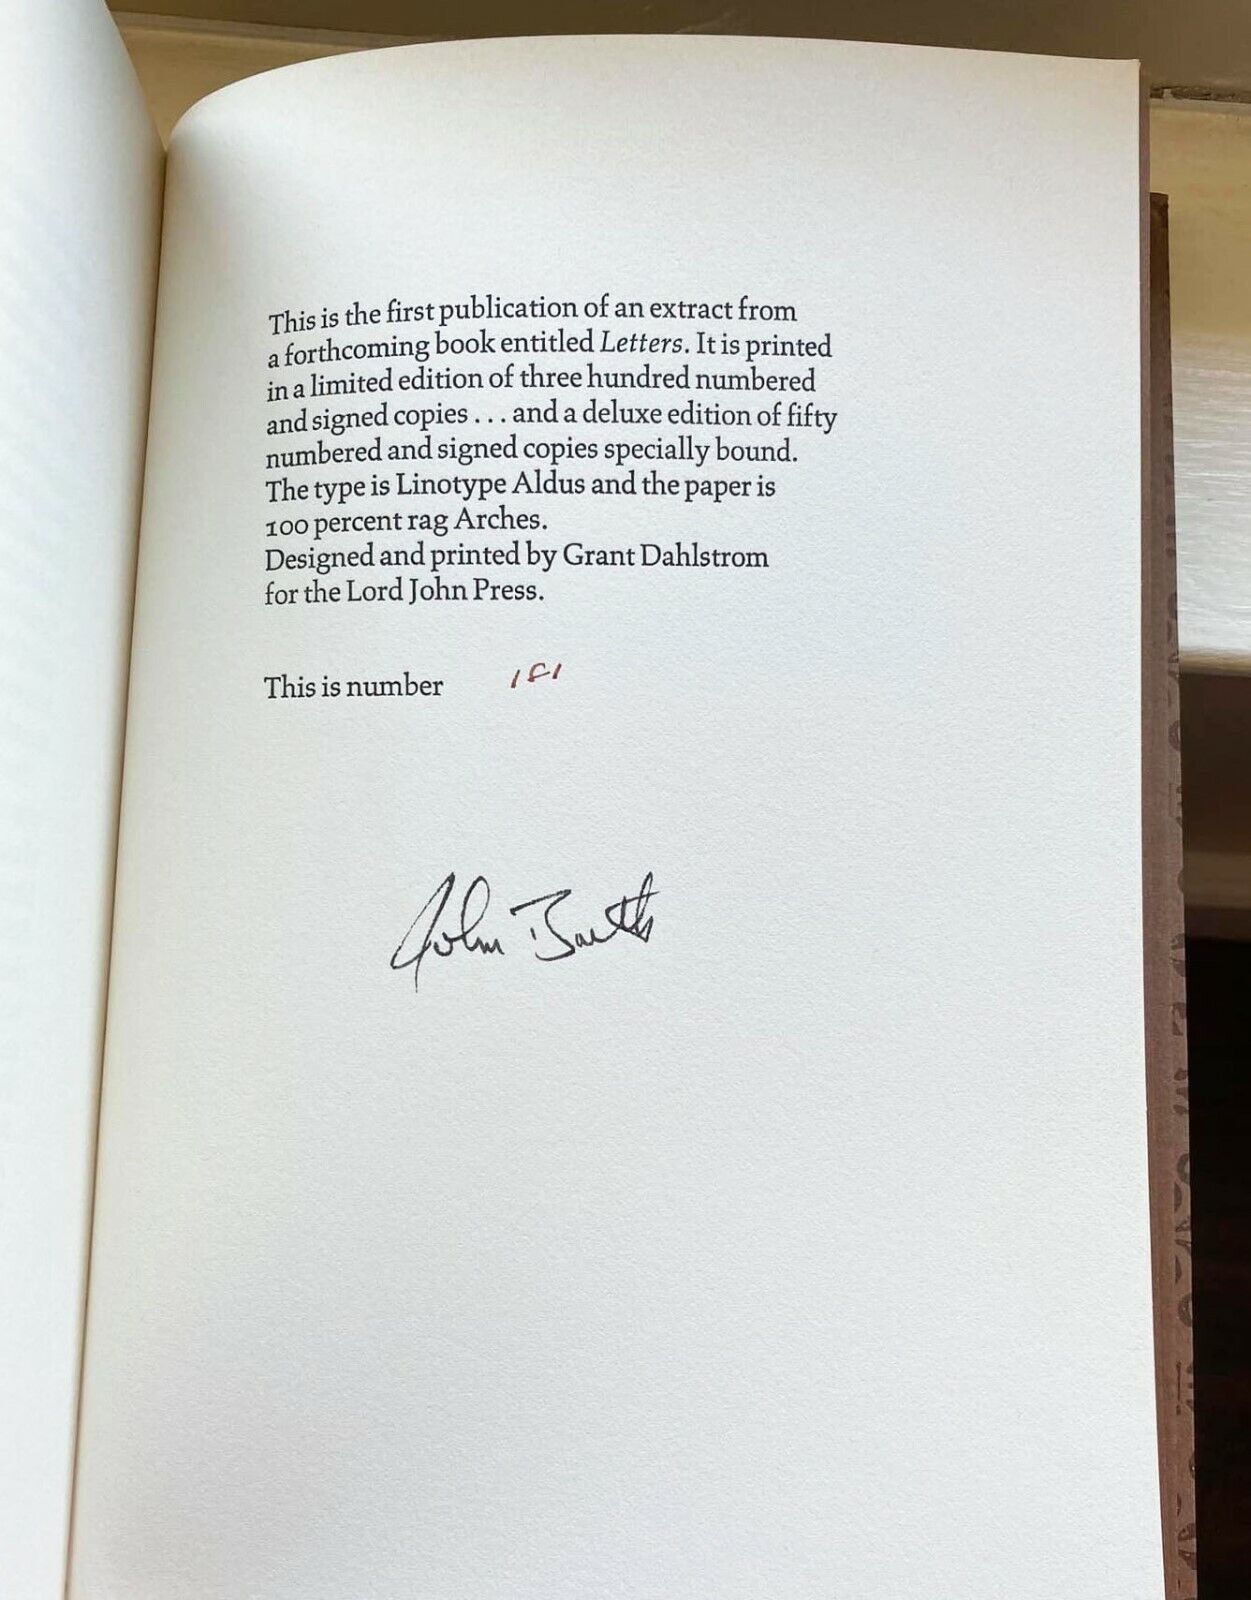 This is the first publication of an extract from
a forthcoming book entitled Letters. It is printed
in a limited edition of three hundred numbered
and signed copies . . . and a deluxe edition of fifty
numbered and signed copies specially bound.
The type is Linotype Aldus and the paper is
100 percent rag Arches.
Designed and printed by Grant Dahlstrom
for the Lord John Press.
This is number
John Barth